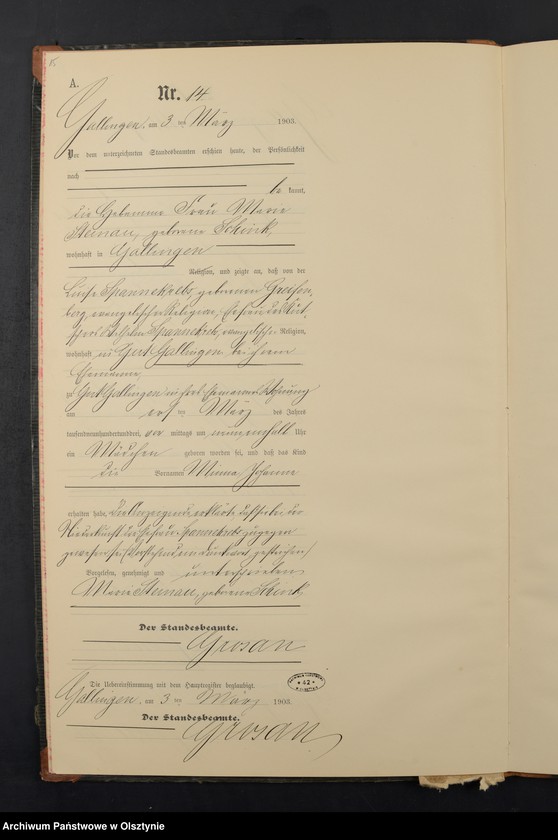 15
A.
Nr. 14
Gallingen, am 3 ten März 1903.
Vor dem unterzeichneten Standesbeamten erschien heute, der Persönlichkeit
nach
be kannt,
die Hebamme Frau Marie
Steinau, geborene Schink,
wohnhaft in Gallingen
Religion, und zeigte an, daß von der
Luise Spannekrebs, geborenen Greifen-
berg, evangelischer Religion, Ehefrau des
Spannekrebs, evangelischer Religion,
wohnhaft in Gut Gallingen bei ihrem
Ehemanne,
zu Gut Gallingen in ihres Ehemannes Wohnung
am ersten März des Jahres
tausendneunhundertunddrei, vor mittags um neuneinhalb Uhr
ein Mädchen geboren worden sei, und daß das Kind
die Vornamen Minna Johanne
erhalten habe. Die Anzeigende erklärte, daß sie bei der
Niederkunft der Ehefrau Spannekrebs zugegen
gewesen sei. Vorstehend ein Druckwort gestrichen
Vorgelesen, genehmigt und unterschrieben
Marie Steinau, geborene Schink
Der Standesbeamte.
Grosan
Die Uebereinstimmung mit dem Hauptregister beglaubigt.
Gallingen, am 3 ten März 1903.
Der Standesbeamte.
Grosan
* 42 *
Archiwum Państwowe w Olsztynie